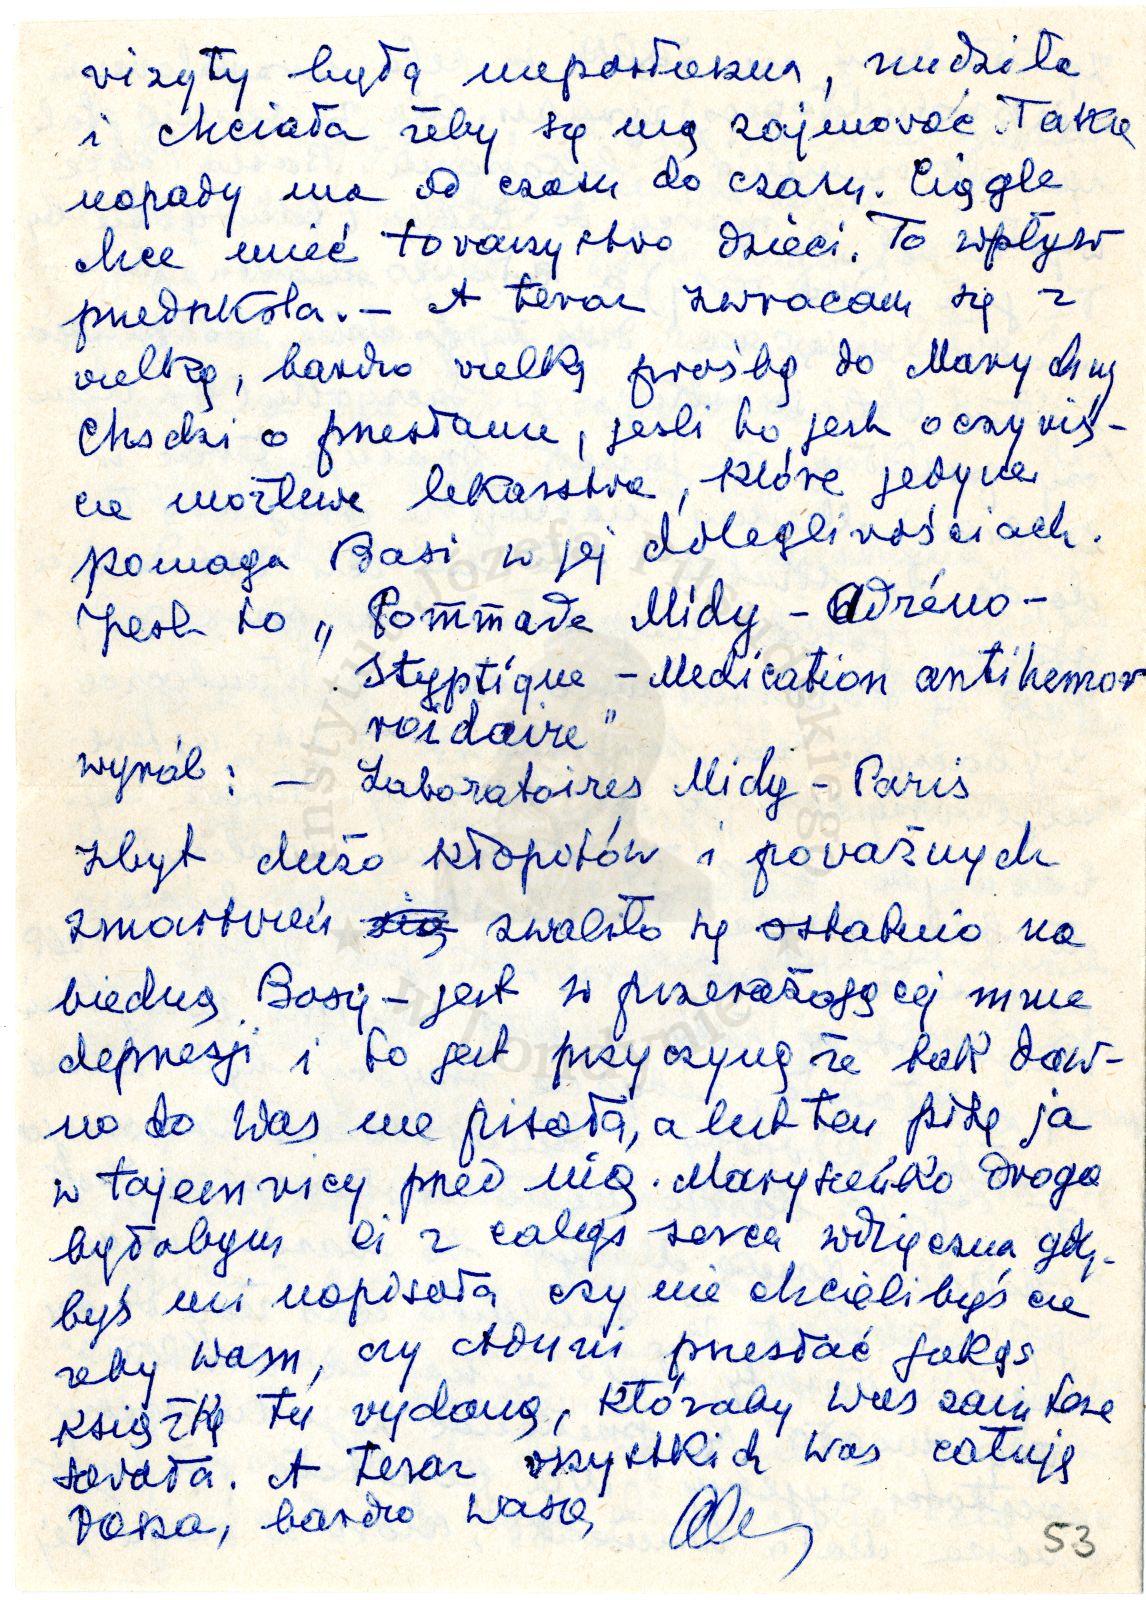 vizyty była nieposłuszna, nudziła
i chciała żeby się nią zajmować. Takie
napady ma od czasu do czasu. Ciągle
chce mieć towarzystwo dzieci. To wpływ
przedszkola. — A teraz zwracam się z
wielką, bardzo wielką prośbą do Marychny
Chodzi o przesłanie, jeśli to jest oczywiś-
cie możliwe lekarstwa, które jedynie
pomaga Basi w jej dolegliwościach.
Jest to „Pommade Midy - Adréno-
Styptique - Medication antihemor
roidaire"
wyrób: — Laboratoires Midy - Paris
Zbyt dużo kłopotów i poważnych
zmartwień zwaliło się ostatnio na
biedną Basię - jest w przerażającej mnie
depresji i to jest przyczyną że tak daw-
no do Was nie pisała, a list ten piszę ja
w tajemnicy przed nią. Marysieńko droga
byłabym Ci z całego serca wdzięczna gdy-
byś mi napisała czy nie chcielibyście
żeby Wam, czy Aduni przesłać jakąś
książkę tu wydaną, któraby Was zaintere
sowała. A teraz wszystkich Was całuję
bardzo Wasza
53
Instytut Józefa Piłsudskiego
w Londynie